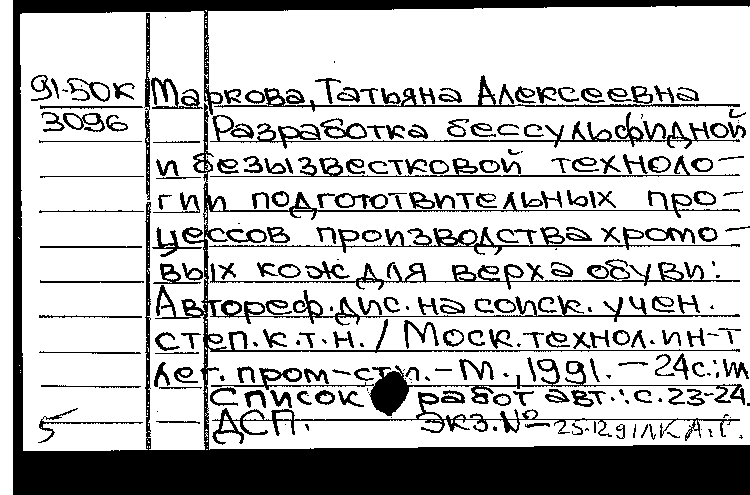 91-50К Маркова, Татьяна Алексеевна
3096 Разработка бессульфидной
и безызвестковой техноло-
гии подготовительных про-
цессов производства хромо-
вых кож для верха обуви:
Автореф. дис. на соиск. учен.
степ. к.т.н. / Моск. технол. ин-т
лег. пром-сти. - М., 1991. - 24с.: ил
Список работ авт.: с. 23-24.
5 ДСП. Экз. № 25.12.91